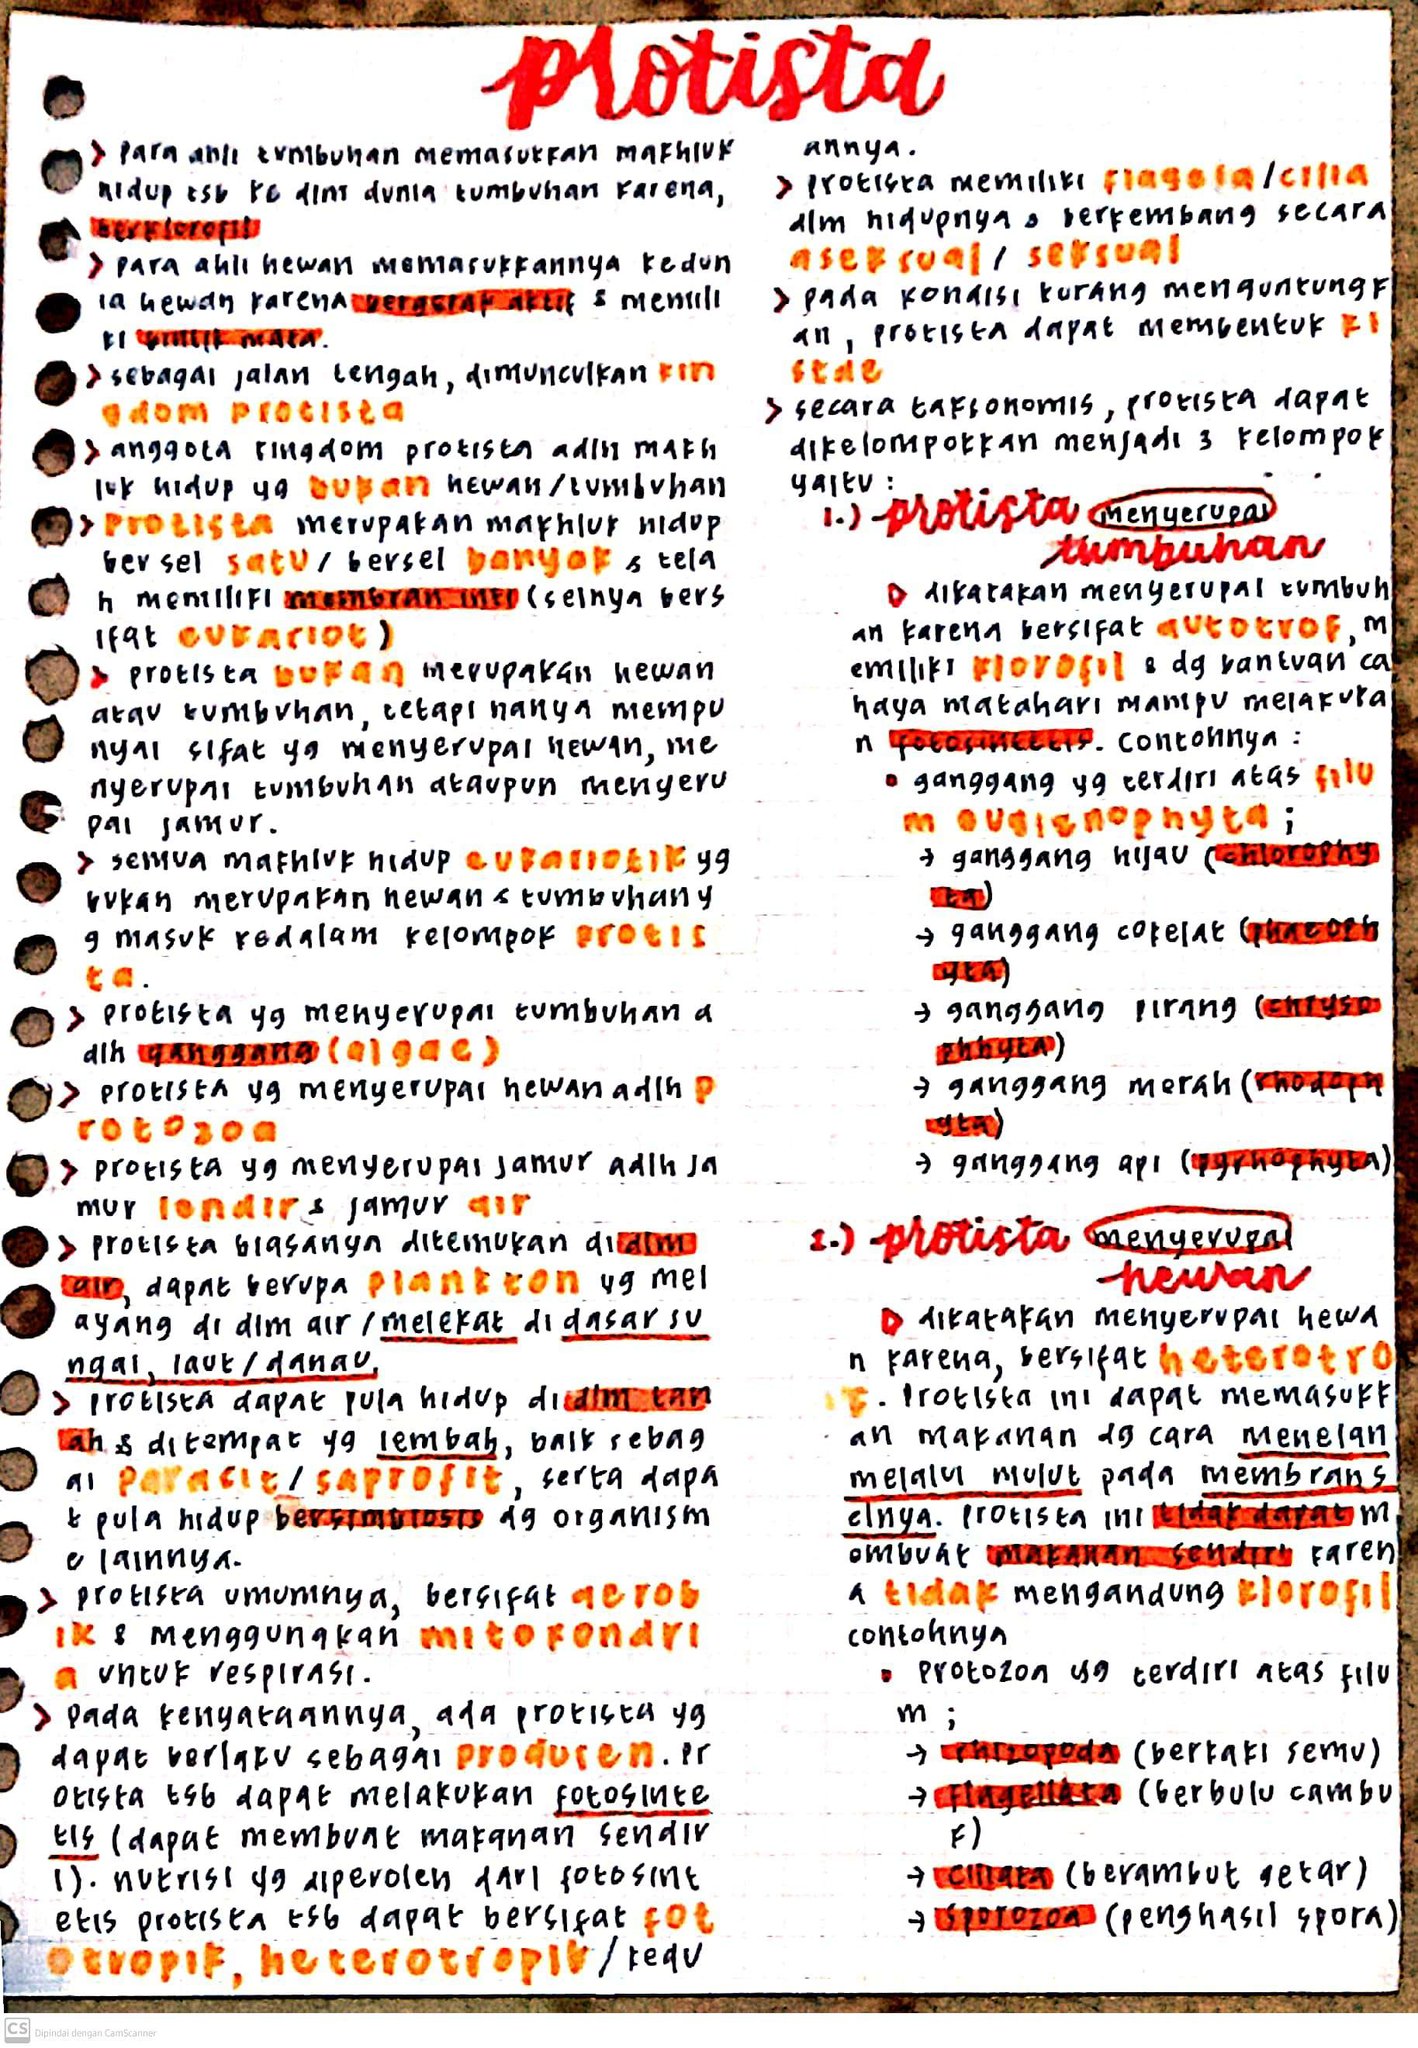 protista
> para ahli tumbuhan memasukkan makhluk
hidup tsb ke dlm dunia tumbuhan karena,
berklorofil
> para ahli hewan memasukkannya kedun
ia hewan karena bergerak aktif & memili
ki bintik mata.
> sebagai jalan tengah, dimunculkan kin
gdom protista
> anggota kingdom protista adlh makh
luk hidup yg bukan hewan/tumbuhan
> Protista merupakan makhluk hidup
bersel satu/bersel banyak & tela
h memiliki membran inti (selnya bers
ifat eukariot)
> protista bukan merupakan hewan
atau tumbuhan, tetapi hanya mempu
nyai sifat yg menyerupai hewan, me
nyerupai tumbuhan ataupun menyeru
pai jamur.
> semua makhluk hidup eukariotik yg
bukan merupakan hewan & tumbuhan y
g masuk kedalam kelompok protis
ta.
> protista yg menyerupai tumbuhan a
dlh ganggang (algae)
> protista yg menyerupai hewan adlh p
rotozoa
> protista yg menyerupai jamur adlh ja
mur lendir & jamur air
> protista biasanya ditemukan di dlm
air, dapat berupa plankton yg mel
ayang di dlm air/melekat di dasar su
ngai, laut/danau.
> protista dapat pula hidup di dlm tan
ah & ditempat yg lembab, baik sebag
ai parasit/saprofit, serta dapa
t pula hidup bersimbiosis dg organism
e lainnya.
> protista umumnya, bersifat aerob
ik & menggunakan mitokondri
a untuk respirasi.
> pada kenyataannya, ada protista yg
dapat berlaku sebagai produsen. Pr
otista tsb dapat melakukan fotosinte
tis (dapat membuat makanan sendir
i). nutrisi yg diperoleh dari fotosint
etis protista tsb dapat bersifat fot
otropik, heterotropik/kedu
annya.
> protista memiliki flagela/cilia
dlm hidupnya & berkembang secara
aseksual/seksual
> pada kondisi kurang menguntungk
an, protista dapat membentuk ki
stae
> secara taksonomis, protista dapat
dikelompokkan menjadi 3 kelompok
yaitu :
1.) protista menyerupai
tumbuhan
dikatakan menyerupai tumbuh
an karena bersifat autotrof, m
emiliki klorofil & dg bantuan ca
haya matahari mampu melakuka
n fotosintetis. Contohnya :
• ganggang yg terdiri atas filu
m euglenophyta ;
→ ganggang hijau (chlorophy
ta)
→ ganggang cokelat (phaeoph
yta)
→ ganggang pirang (chryso
phhyta)
→ ganggang merah (rhodoph
yta)
→ ganggang api (pyrrhophyta)
2.) protista menyerupai
hewan
dikatakan menyerupai hewa
n karena, bersifat heterotro
if. Protista ini dapat memasukk
an makanan dg cara menelan
melalui mulut pada membran s
elnya. protista ini tidak dapat m
embuat makanan sendiri karen
a tidak mengandung klorofil
contohnya
• protozoa yg terdiri atas filu
m ;
→ rhizopoda (berkaki semu)
→ flagellata (berbulu cambu
k)
→ ciliata (berambut getar)
→ sporozoa (penghasil spora)
CS Dipindai dengan CamScanner